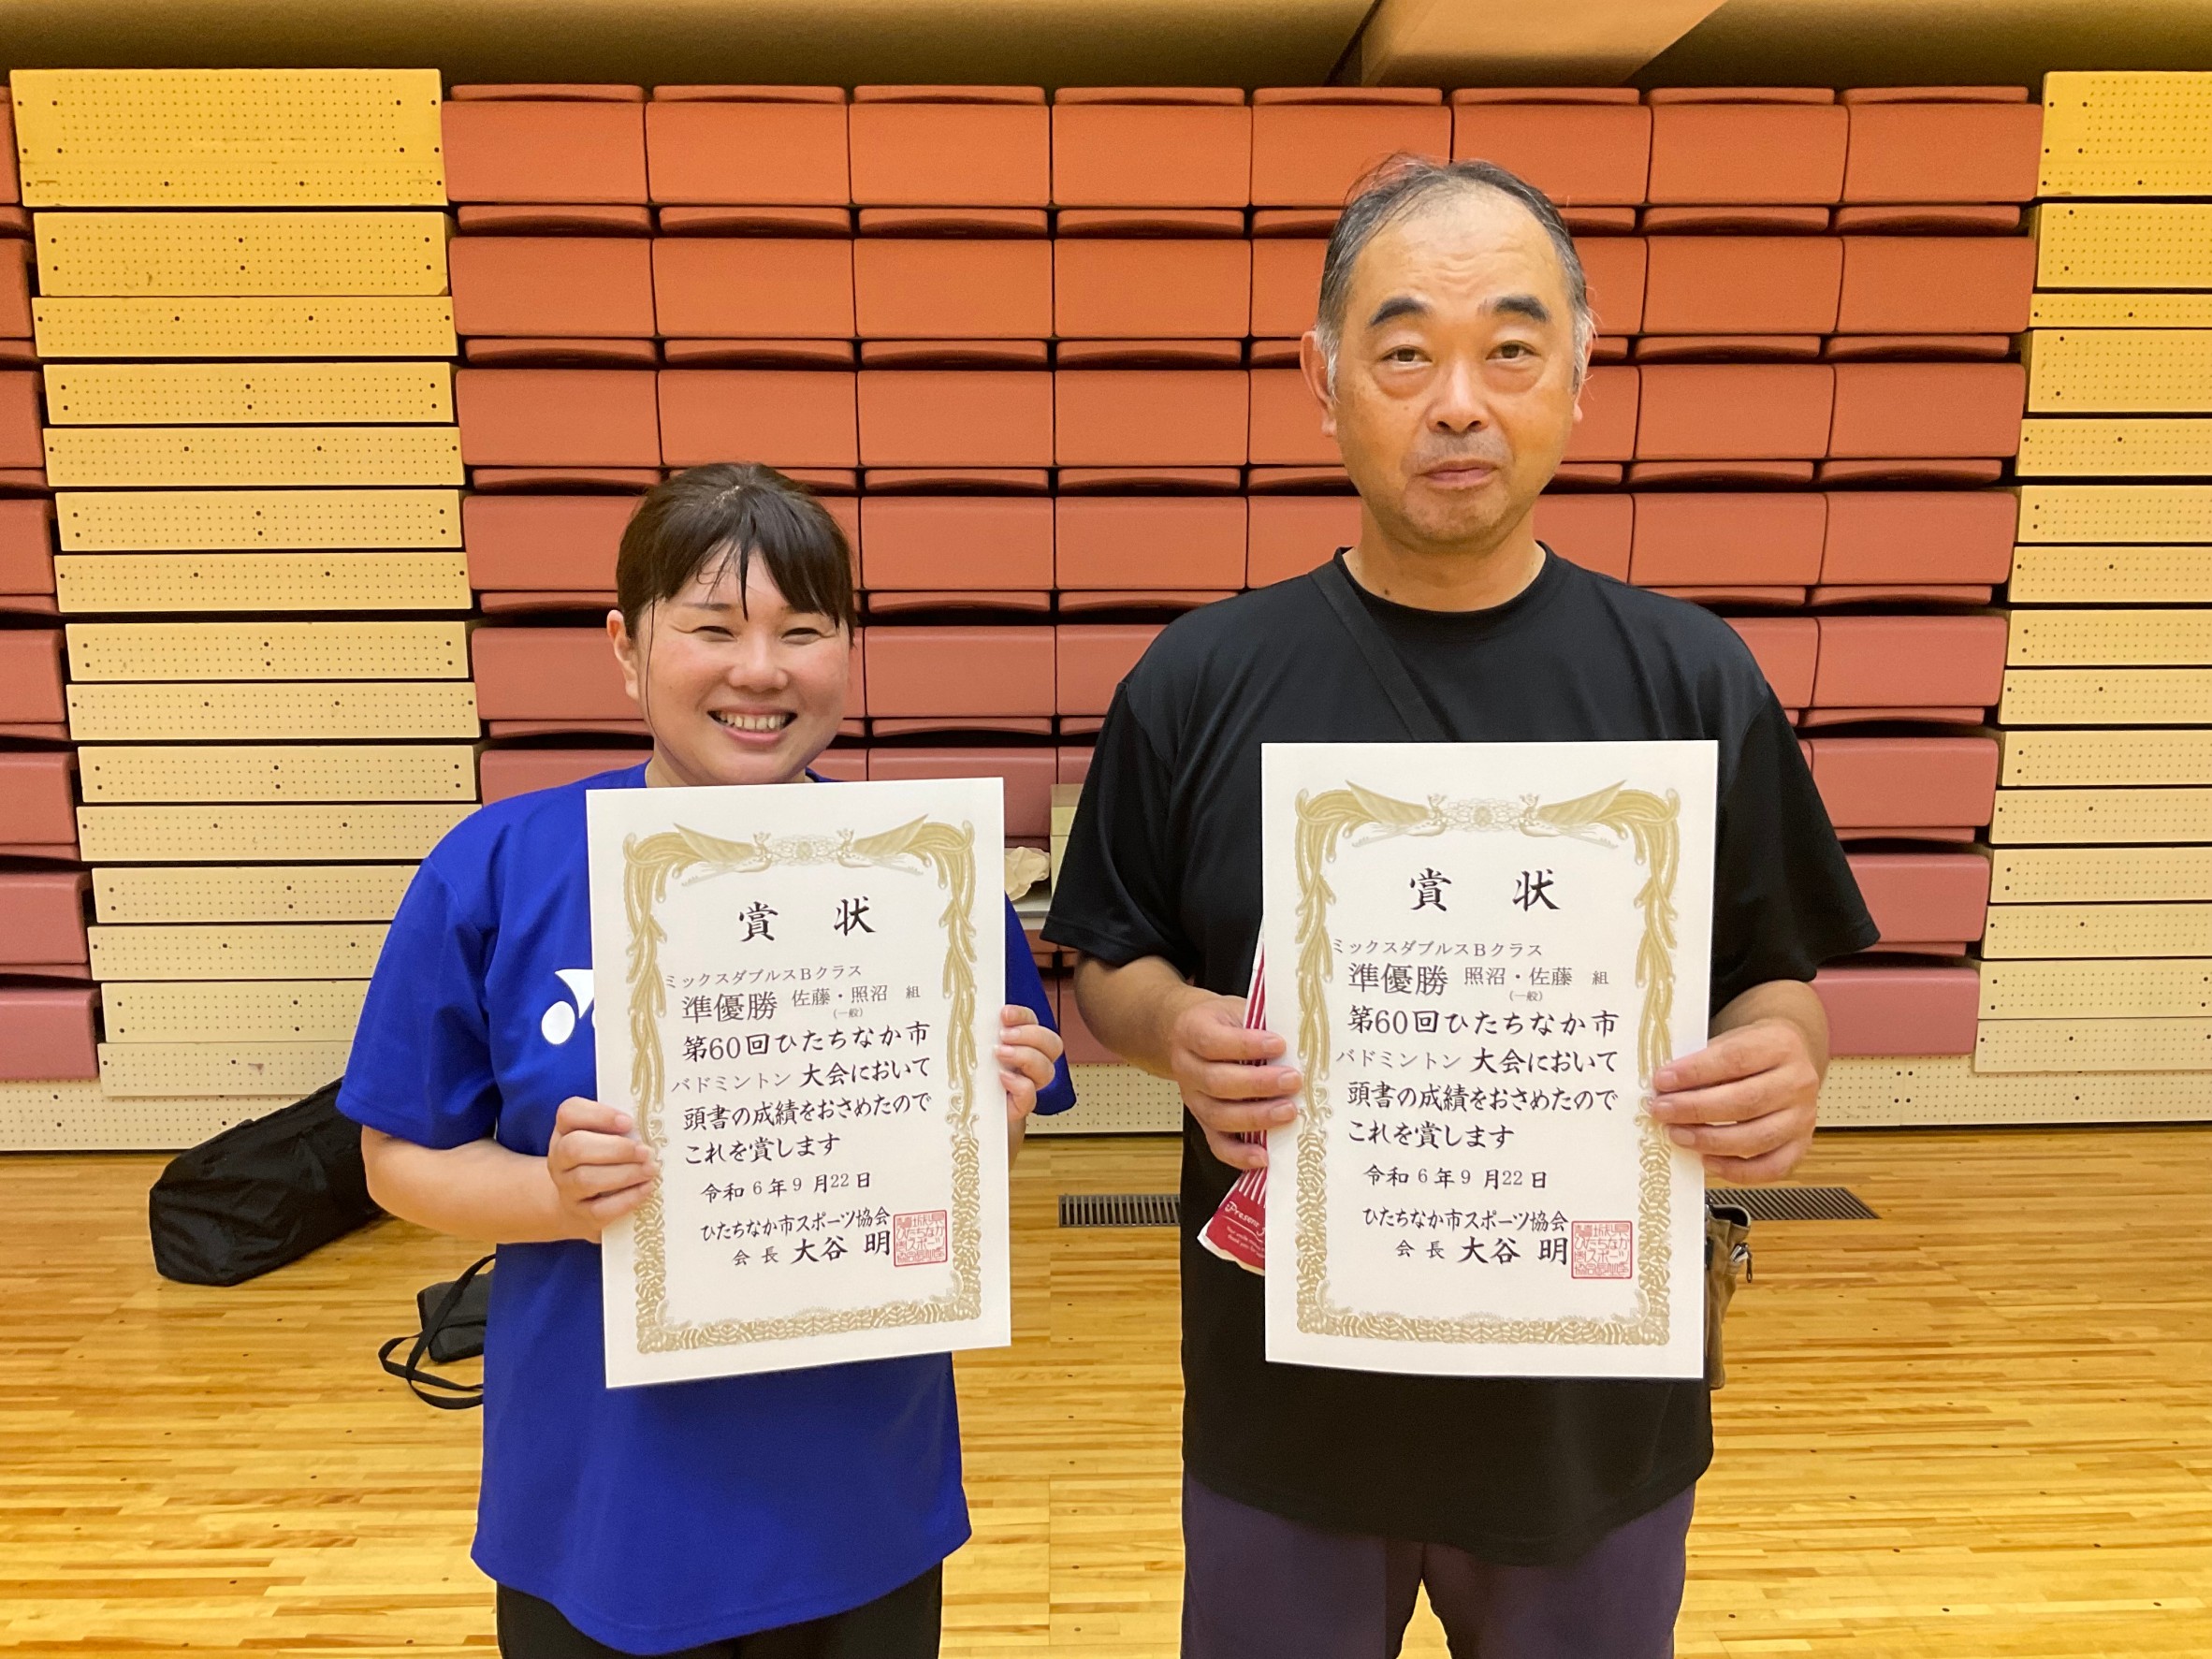 賞 状
ミックスダブルスBクラス
準優勝 佐藤・照沼 組
(一般)
第60回ひたちなか市
バドミントン 大会において
頭書の成績をおさめたので
これを賞します
令和 6 年 9 月 22 日
ひたちなか市スポーツ協会
会 長 大谷 明
賞 状
ミックスダブルスBクラス
準優勝 照沼・佐藤 組
(一般)
第60回ひたちなか市
バドミントン 大会において
頭書の成績をおさめたので
これを賞します
令和 6 年 9 月 22 日
ひたちなか市スポーツ協会
会 長 大谷 明
Present